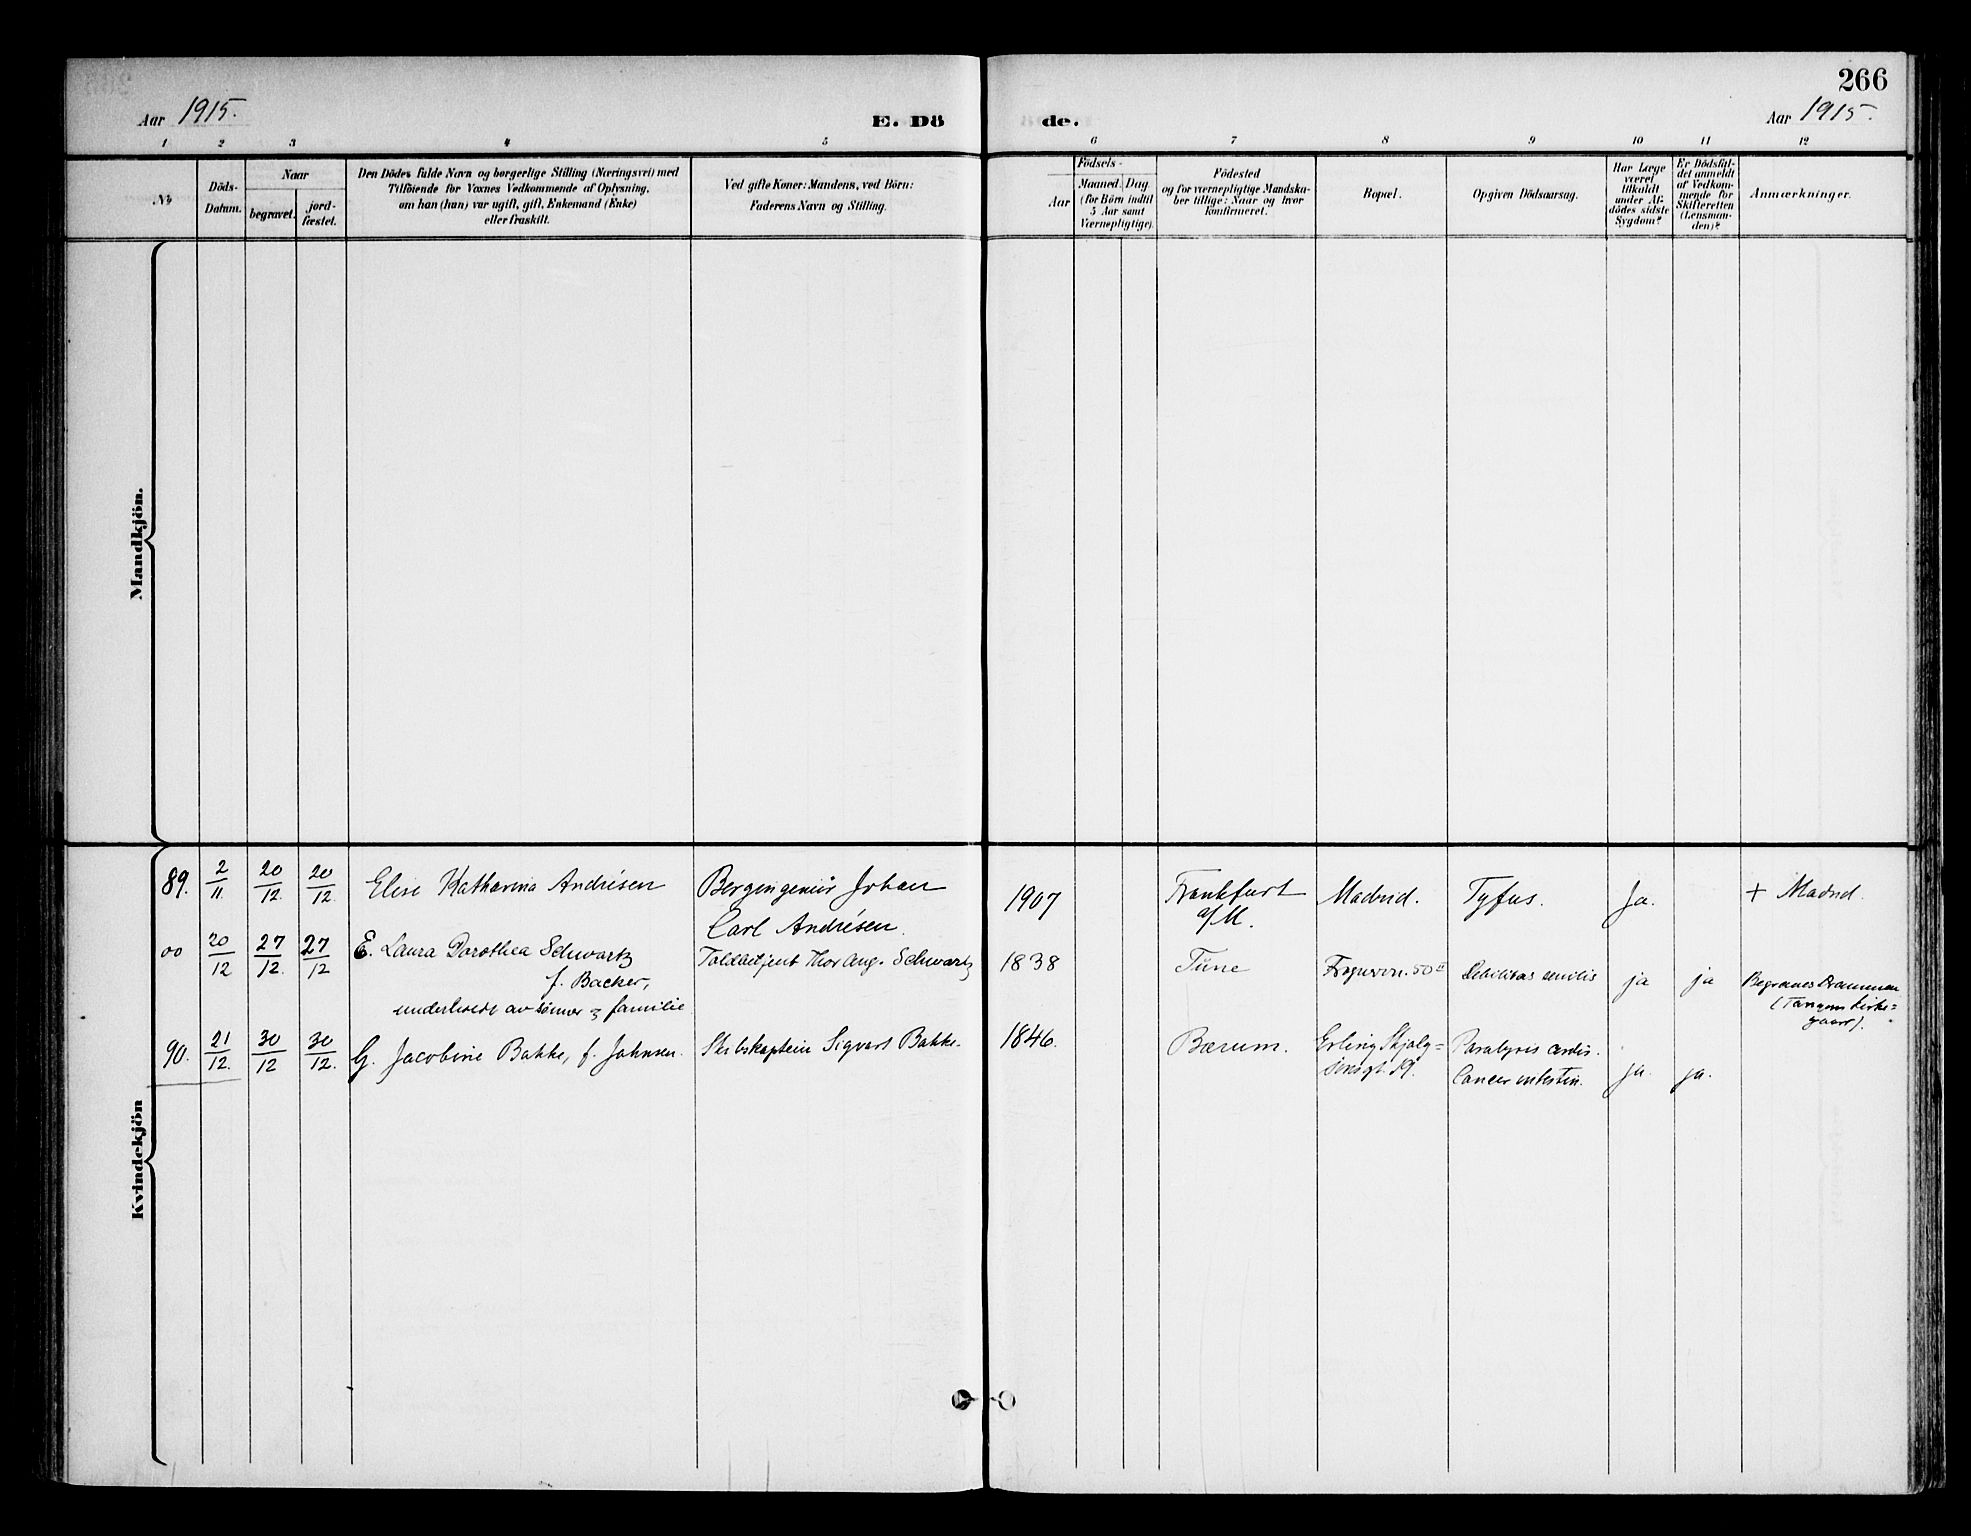 266
Aar 1915.
E. Dö de.
Aar 1915.
1 2 3 4 5 6 7 8 9 10 11 12
No
Döds-
Datum.
Naar
begravet.
jord-
fæstet.
Den Dödes fulde Navn og borgerlige Stilling (Næringsvei) med
Tilföiende for Voxnes Vedkommende af Oplysning,
om han (hun) var ugift, gift, Enkemand (Enke)
eller fraskilt.
Ved gifte Koner: Mandens, ved Börn:
Faderens Navn og Stilling.
Födsels-
Aar
Maaned. Dag.
(for Börn indtil
5 Aar samt
Værnepligtige).
Födested
og for værnepligtige Mandska-
ber tillige: Naar og hvor
konfirmeret.
Bopæl.
Opgiven Dödsaarsag.
Har Læge
været
tilkaldt
under Af-
dödes sidste
Sygdom?
Er Dödsfal-
det anmeldt
af Vedkom-
mende for
Skifteretten
(Lensman-
den)?
Anmærkninger.
Mandkjön.
Kvindekjön
89. 2/11 20/12 20/12 Elise Katharina Andrésen Bergingeniør Johan
Carl Andrésen. 1907 Frankfurt
a/M. Madrid. Tyfus. Ja. + Madrid.
00 20/12 27/12 27/12 E. Laura Dorothea Schwartz
f. Backer,
underholdt av sønner & familie
Toldbetjent Thor Aug. Schwartz 1838 Tune Frognervn. 50 II Debilitas senilis ja ja Begravet Drammen
(Tangens kirke=
gaard).
90. 21/12 30/12 30/12 G. Jacobine Bakke, f. Johnsen. Skibskaptein Sigvart Bakke. 1846. Bærum. Erling Skjalg=
sønsgt. 19. Paralysis cordis.
Cancer intestin. ja. ja.